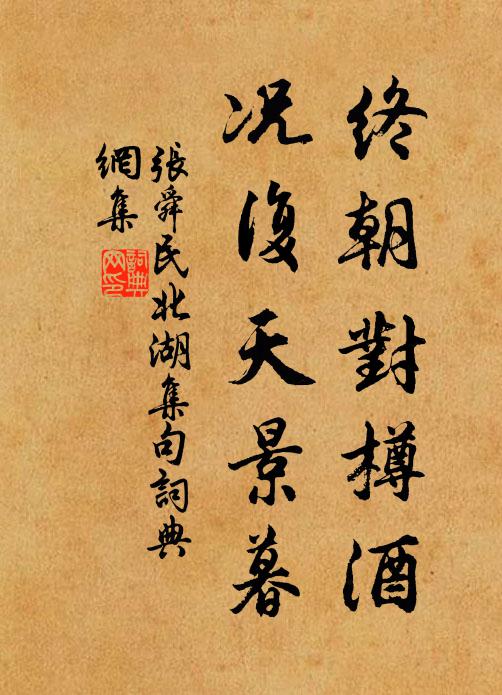 終朝對樽酒
况復天景暮
張舜民北湖集句詞典
網集
詞典
网印